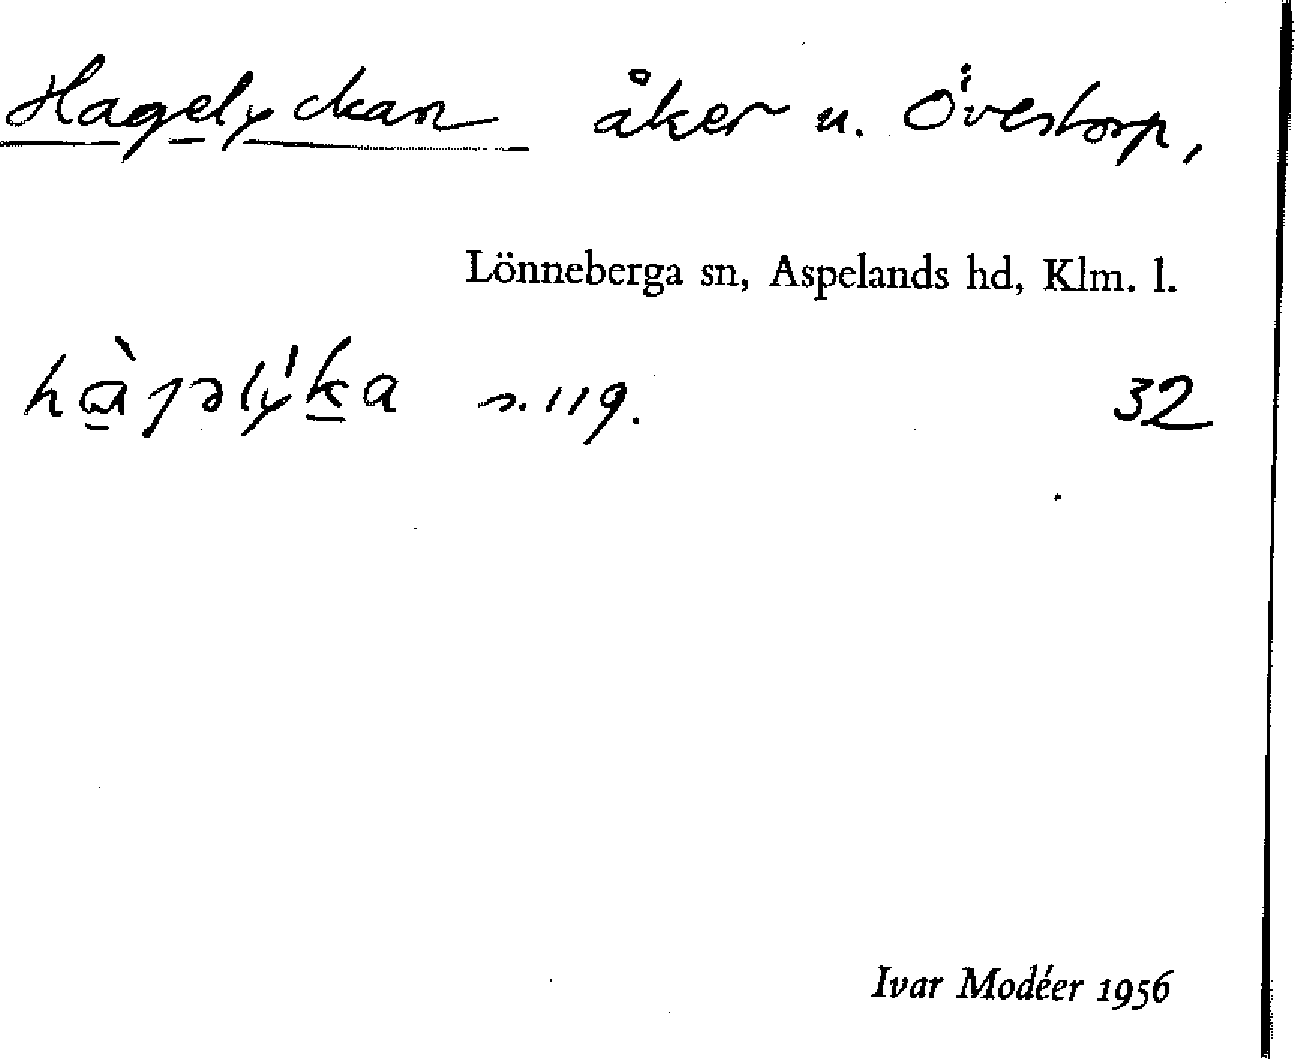 Hagelyckan åker u. Överstorp,
Lönneberga sn, Aspelands hd, Klm. l.
s. 119. 32
Ivar Modéer 1956